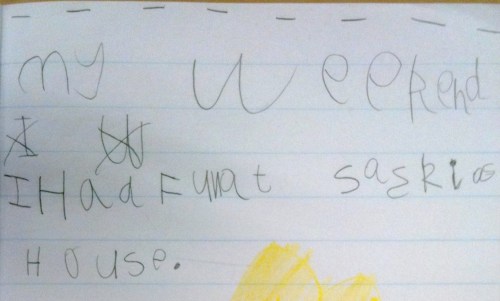 my weekend
I Had Fun at saskias
House.